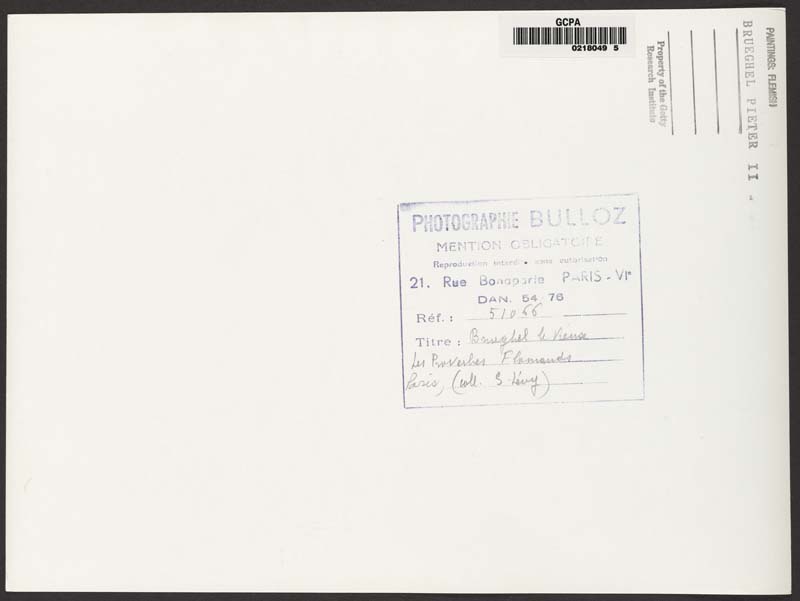 GCPA
0218049 5
PAINTINGS: FLEMISH
BRUEGHEL PIETER II
Property of the Getty
Research Institute
PHOTOGRAPHIE BULLOZ
MENTION OBLIGATOIRE
Reproduction interdite sans autorisation
21. Rue Bonaparte PARIS - VIe
DAN. 54 76
Réf.: 51066
Titre: Brueghel le Vieux
Les Proverbes Flamands
Paris, (coll. S. Lévy)